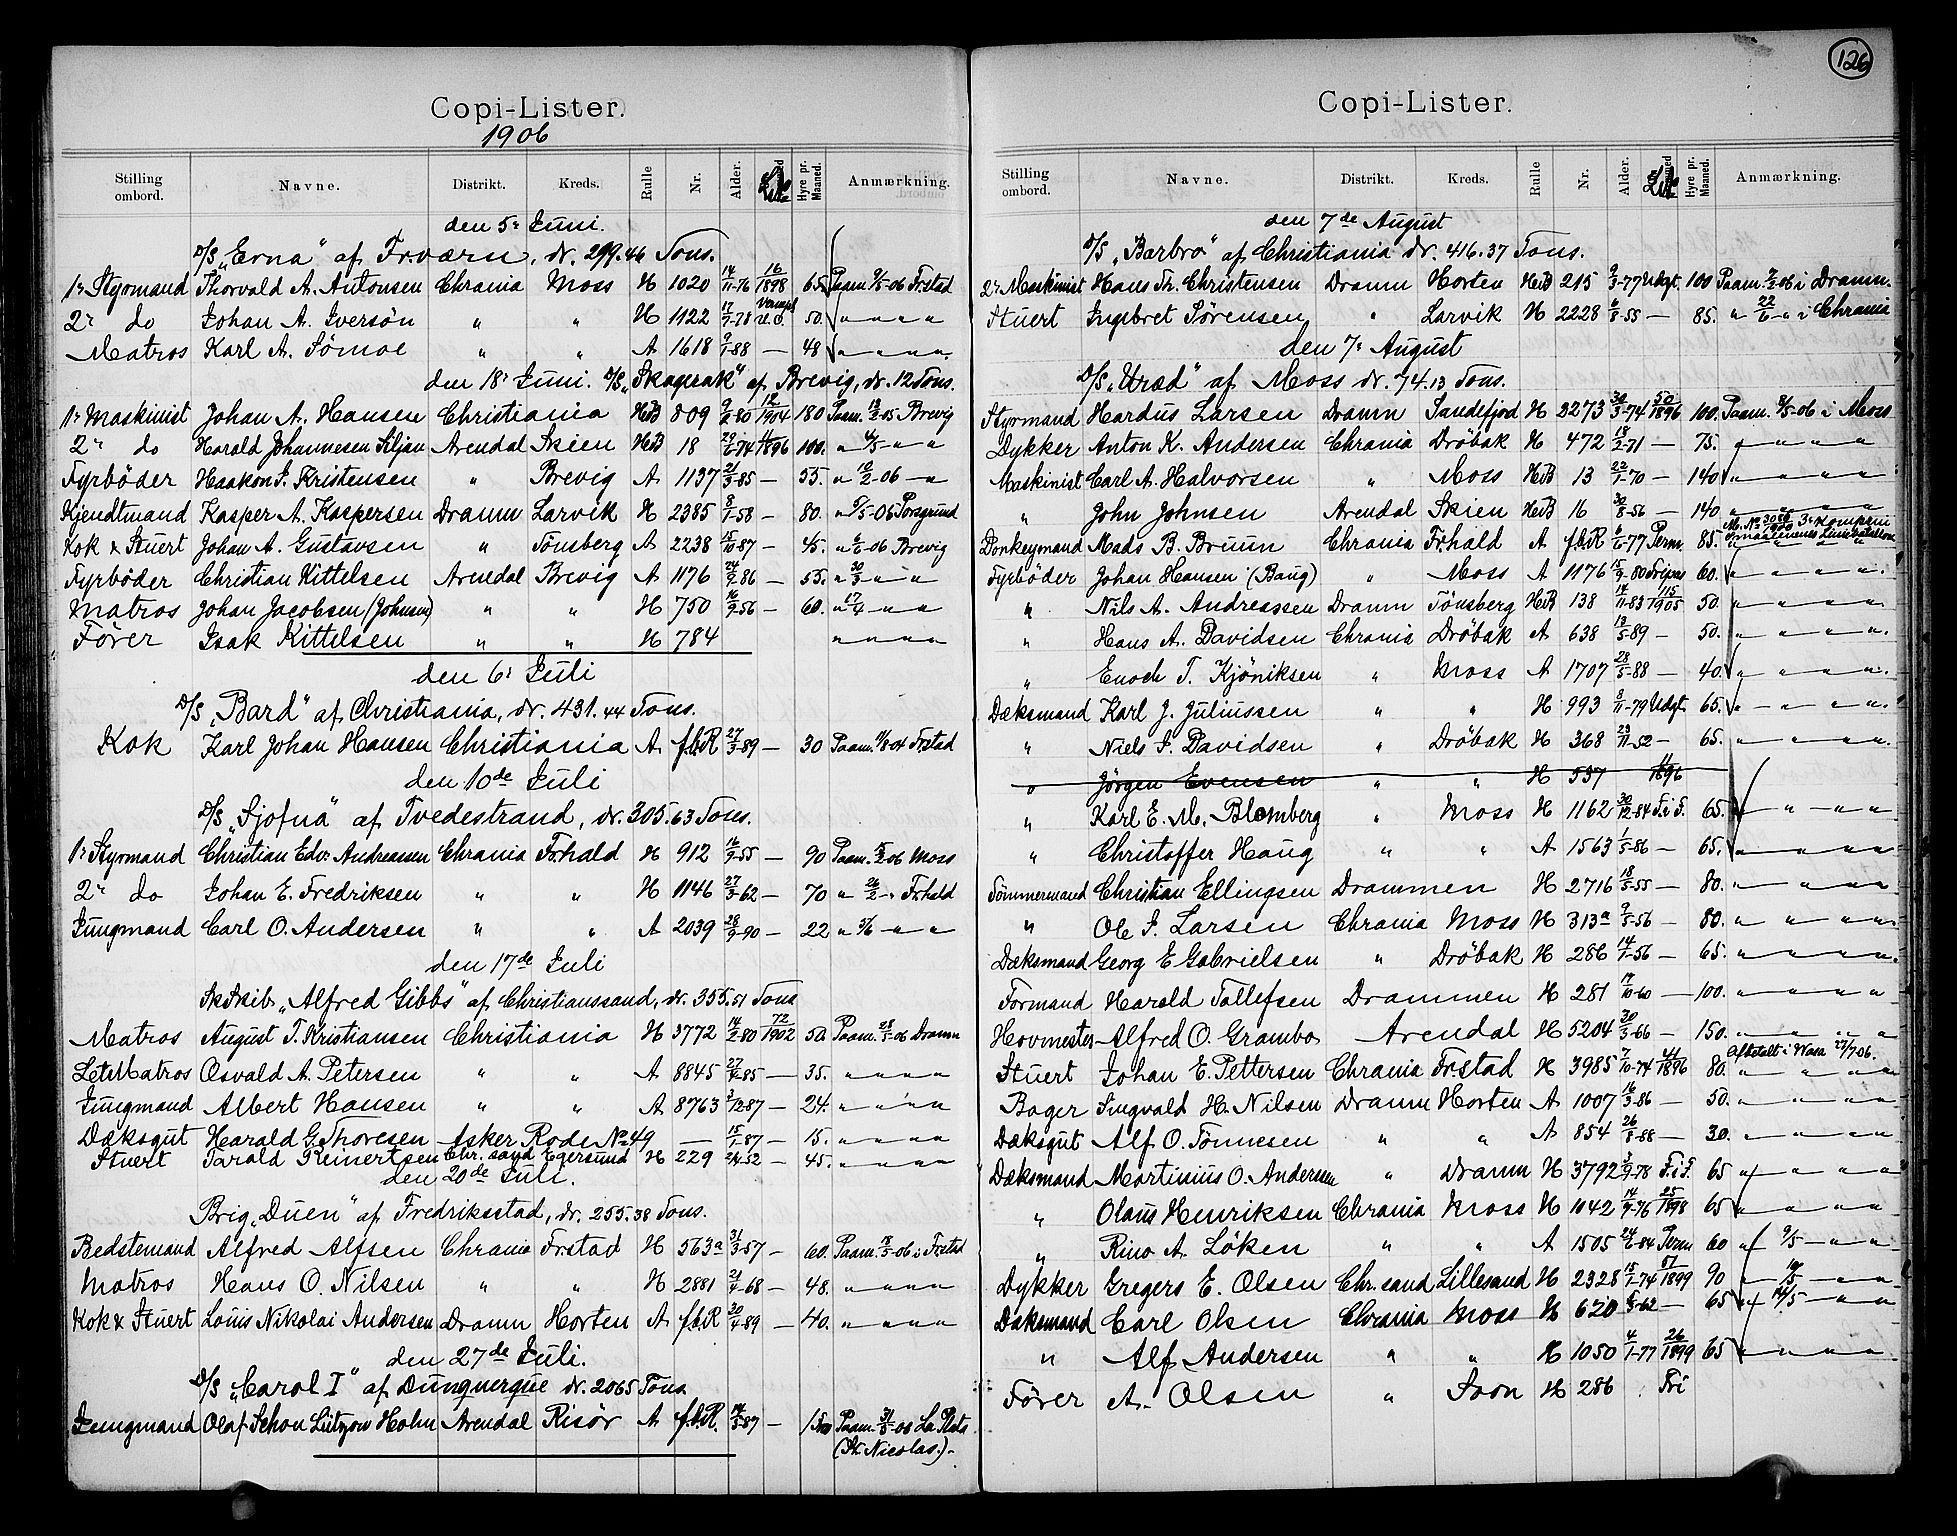 Copi-Lister.
1906
Stilling ombord. Navne. Distrikt. Kreds. Rulle Nr. Alder. Hyre pr. Maaned. Anmærkning.
den 5' Juni.
D/S „Erna" af Fr.værn, dr. 299.46 Tons.
1' Styrmand Thorvald A. Antonsen Chrania Moss H 1020 14/11-76 16/1898 65 Paam. 9/5-06 Fr.stad
2' do Johan A. Iversön " " H 1122 17/7-78 50. " " " "
Matros Karl A. Sömoe " " A 1618 9/1-88 — 48 " " " "
den 18' Juni. D/S „Skagerak" af Brevig, dr. 12 Tons.
1' Maskinist Johan A. Hansen Christiania H&B 809 9/6-80 12/1904 180 Paam. 13/2-05 Brevig
2' do Harald Johannesen Siljan Arendal Skien H&B 18 29/6-74 1896 100. " 4/5 — " "
Fyrböder Haakon J. Kristensen " Brevig A 1137 21/3-85 — 55. " 10/2-06 — "
Kjendtmand Kasper A. Kaspersen Dramn Larvik H 2385 8/1-58 — 80. " 5/5-06 Porsgrund
Kok & Stuert Johan A. Gustavsen " Tönsberg A 2238 15/10-87 — 45. " 6/6-06 Brevig
Fyrböder Christian Kittelsen Arendal Brevig A 1176 24/9-86 — 55. " 30/3 — " "
Matros Johan Jacobsen (Johnsen) " " H 750 16/9-56 — 60. " 17/4 — " "
Förer Isak Kittelsen " " H 784 " " " "
den 6' Juli
D/S „Bard" af Christiania, dr. 431.44 Tons.
Kok Karl Johan Hansen Christiania A f.b.R 27/3-89 — 30 Paam. 9/8-04 Fr.stad
den 10de Juli
D/S „Sjofna" af Tvedestrand, dr. 305.63 Tons.
1' Styrmand Christian Edv. Andreassen Chrania Fr.hald H 912 16/9-55 — 90 Paam. 15/2-06 Moss
2' do Johan E. Fredriksen " " H 1146 27/3-62 — 70 " 26/2 — " Fr.hald
Jungmand Carl O. Andersen " " A 2039 28/9-90 — 22 " 5/6 — " "
den 17de Juli
Sk.Skib „Alfred Gibbs" af Christianssand, dr. 355.51 Tons
Matros August T. Kristiansen Christiania H 3772 14/2-80 72/1902 50. Paam. 28/5-06 Dramn
Let.Matros Osvald A. Petersen " " A 8845 27/4-85 — 35. " " " "
Jungmand Albert Hansen " " A 8763 3/12-87 — 24. " " " "
Dæksgut Harald G. Thoresen Asker Rode No 49 — 15/1-87 — 15. " " " "
Stuert Tarald Reinertsen Chr.sand Egersund H 229 2/4-52 — 45. " " " "
den 20de Juli.
Brig „Duen" af Fredriksstad, dr. 255.38 Tons.
Bedstemand Alfred Alfsen Chrania Fr.stad H 563a 31/3-57 — 60. Paam. 18/5-06 i Fr.stad
Matros Hans O. Nilsen " " H 2881 21/4-68 — 48. " " " "
Kok & Stuert Louis Nikolai Andersen Dramn Horten A f.b.R 30/4-89 — 40. " " " "
den 27de Juli.
D/S „Carol I" af Dunquerque dr. 2065 Tons
Jungmand Olaf Schou Lützow Holm Arendal Risör A f.b.R. 14/5-87 — Paam. 31/5-06 La Plata
(St. Nicolas.)
126
Copi-Lister.
Stilling ombord. Navne. Distrikt. Kreds. Rulle Nr. Alder. Hyre pr. Maaned. Anmærkning.
den 7de August
D/S „Barbro" af Christiania dr. 416.37 Tons.
2' Maskinist Hans Th. Christensen Dramn Horten H&B 215 2/3-77 Udgt. 100 Paam. 2/2-06 i Dramn.
Stuert Ingebret Sörensen " Larvik H 2228 6/8-55 — 85. " 22/6 - " i Chrania
den 7' August
D/S „Uræd" af Moss dr. 74.13 Tons.
Styrmand Hardus Larsen Dramn Sandefjord H 2273 30/3-74 50/1896 100. Paam. 3/5-06 i Moss
Dykker Anton K. Andersen Chrania Dröbak H 472 18/2-71 — 75. " " " "
Maskinist Carl A. Halvorsen " Moss H&B 13 22/1-70 — 140 " " " "
" John Johnsen Arendal Skien H&B 16 30/8-56 — 140 " " " "
Donkeymand Mads B. Bruun Chrania Fr.hald A f.b.R 6/6-77 Perm. 85.
Fyrböder Johan Hansen (Baug) " Moss A 1176 15/9-80 Fripas 60. " " " "
" Nils A. Andreassen Dramn Tönsberg H&B 138 14/11-83 115/1905 50. " " " "
" Hans A. Davidsen Chrania Dröbak A 638 13/5-89 — 50. " " " "
" Enoch T. Kjöniksen " Moss A 1707 28/5-88 — 40. " " " "
Dæksmand Karl J. Juliussen " " H 993 8/11-79 Udgt. 65. " " " "
" Niels J. Davidsen " Dröbak H 368 23/11-52 — 65. " " " "
" Jörgen Evensen " " H 557 11/1896
" Karl E. M. Blomberg " Moss H 1162 30/12-84 F.i.F. 65. " " " "
" Christoffer Haug " " A 1563 1/5-86 — 65. " " " "
Tömmermand Christian Ellingsen Drammen H 2716 18/5-55 — 80. " " " "
" Ole J. Larsen Chrania Moss H 313a 9/5-56 — 80. " " " "
Dæksmand Georg E Gabrielsen " Dröbak H 286 14/1-56 — 65. " " " "
Formand Harald Tollefsen Drammen H 281 17/10-60 — 100. " " " "
Hovmester Alfred O. Grambo Arendal H 5204 30/3-66 — 150. " " " "
Afbetalt i Wasa 27/7 06.
Stuert Johan E. Pettersen Chrania Fr.stad H 3985 7/10-74 41/1896 80. " " " "
Bager Ingvald H. Nilsen Dramn Horten A 1007 16/3-86 — 50. " " " "
Dæksgut Alf O. Tönnesen " " A 854 26/8-88 — 30. " " " "
Dæksmand Martinius O. Andersen " Dramn H 3792 3/9-78 F.i.F. 65 " " " "
" Olaus Henriksen Chrania Moss H 1042 14/4-76 25/1898 65 " " " "
" Rino A. Löken " " A 1505 24/6-84 Perm 60 " 9/5 — " "
Dykker Gregers E. Olsen Chr.sand Lillesand H 2328 15/1-74 57/1899 90 " 10/5 — " "
Dæksmand Carl Olsen Chrania Moss H 620 6/5-62 — 65 " 14/5 — " "
" Alf Andersen " " H 1050 4/1-77 26/1899 65 " " " "
Förer A. Olsen " Soon H 286 Fri